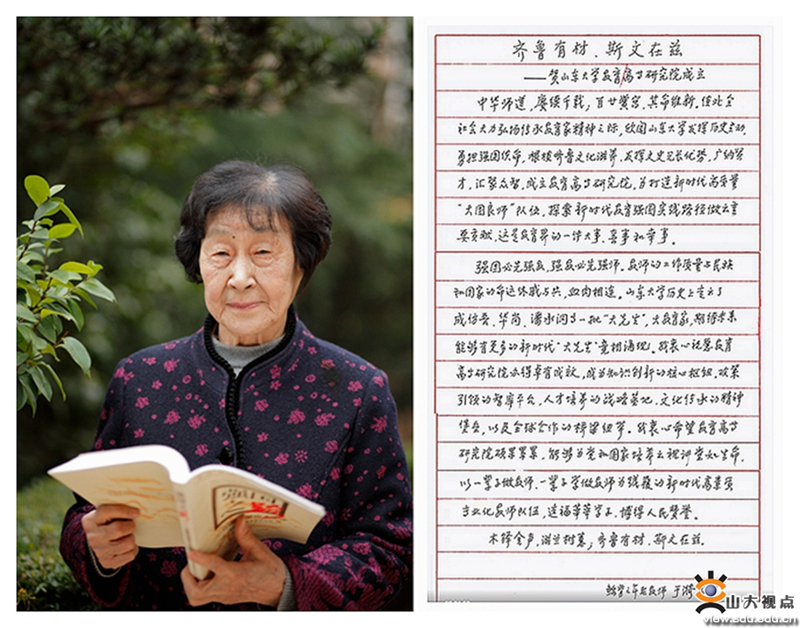 齐鲁有材、斯文在兹
——贺山东大学教育高等研究院成立
中华师道，赓续千载，百廿黉宫，其命维新。值此全
社会大力弘扬传承教育家精神之际，欣闻山东大学发挥历史主动，
勇担强国使命，根植齐鲁文化滋养，发挥文史见长优势，广纳贤
才，汇聚众智，成立教育高等研究院，为打造新时代高质量
"大国良师"队伍，探索新时代教育强国实践路径做出重
要贡献，这是教育界的一件大事、喜事和幸事。
强国必先强教，强教必先强师。教师的工作质量与民族
和国家的命运休戚与共，血肉相连。山东大学历史上走出了
成仿吾、华岗、潘承洞等一批"大先生"、大教育家，期待未来
能够有更多的新时代"大先生"竞相涌现。我衷心祝愿教育
高等研究院办得卓有成效，成为知识创新的核心枢纽、政策
引领的智库平台、人才培养的战略基地、文化传承的精神
堡垒，以及全球合作的桥梁纽带。我衷心希望教育高等
研究院硕果累累，能够为党和国家培养出视讲堂如生命、
以一辈子做教师、一辈子学做教师为线履的新时代高素质
专业化教师队伍，造福莘莘学子，博得人民赞誉。
木铎金声，滋兰树蕙；齐鲁有材，斯文在兹。
老教师 于漪
山大视点
view.sdu.edu.cn